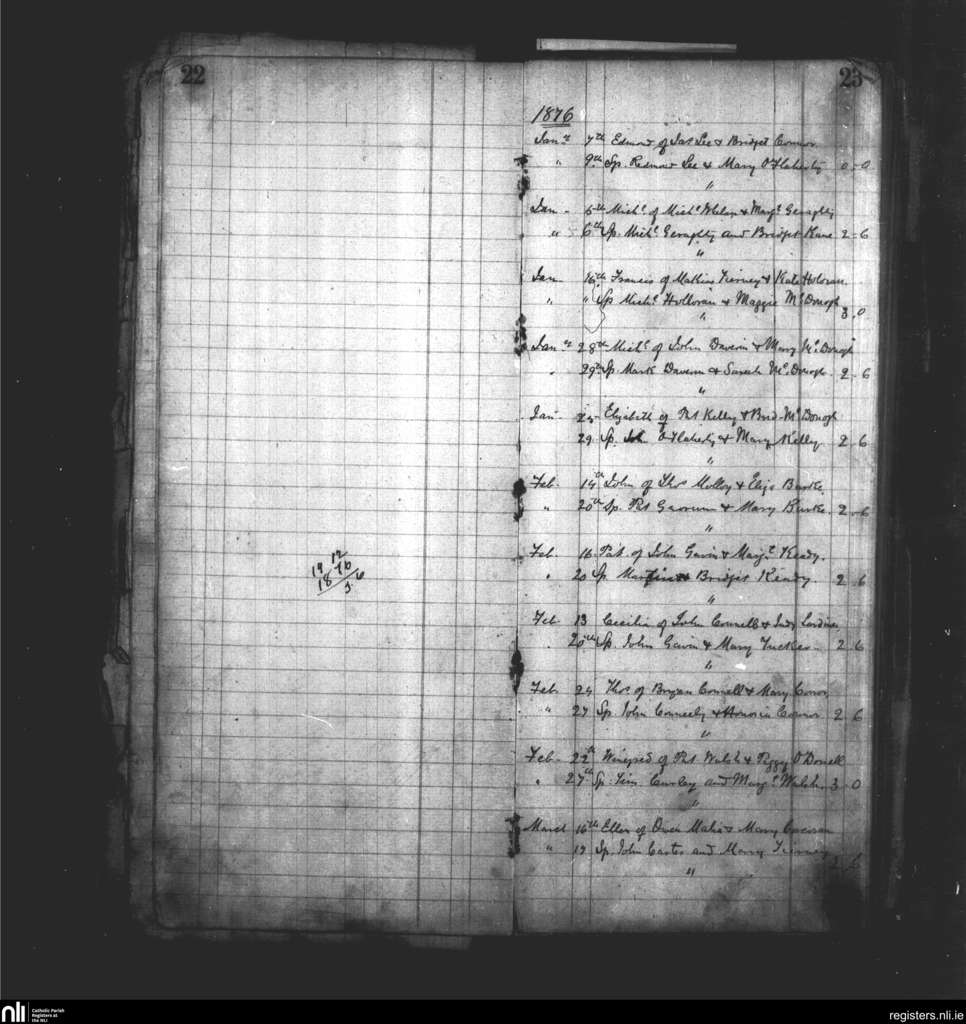 22
19 12
18 76
3 6
23
1876
Jany 7th Edmond of Jas Lee & Bridget Connor
" 9th Sp. Redmond Lee & Mary O'Flaherty 0-0
"
Jan - 5th Michl of Michl Whelan & Margt Geraghty
" 6th Sp. Michl Geraghty and Bridget Kane 2-6
"
Jan 16th Francis of Tierney & Kate Holoran
" " Sp Michl Holloran & Maggie McDonogh 3.0
"
Jany 28th Michl of John Daverin & Mary McDonogh
" 29th Sp. Mark Davern & Sarah McDonogh 2-6
"
Jan Elizabeth of Pat Kelly & Brid- McDonogh
29 Sp. John O'Flaherty & Mary Kelly 2 6
"
Feb. 14th John of Thos Molloy & Eliza Burke.
" 20th Sp. Pat & Mary Burke. 2-6
"
Feb 16 Pat. of John Gavin & Margt Keady.
" 20 Sp Martin & Bridget Keady. 2 6
"
Feb 13 Cecilia of John Connell &
" 20th Sp. John Gavin & Mary Tucker - 2 6
"
Feb. 24 Thos of Bryan Connell & Mary Conor
" 27 Sp. John Conneely & Honoria Connor 2 6
"
Feb- 22th Winifred of Pat Walsh & Peggy O'Donell
" 27th Sp. Tim Curley and Margt Walsh. 3-0
"
March 16th Ellen of Owen & Mary Corcoran
" 19 Sp. John Carter and Mary Tierney
"
nli
Catholic Parish
Registers at
the NLI
registers.nli.ie